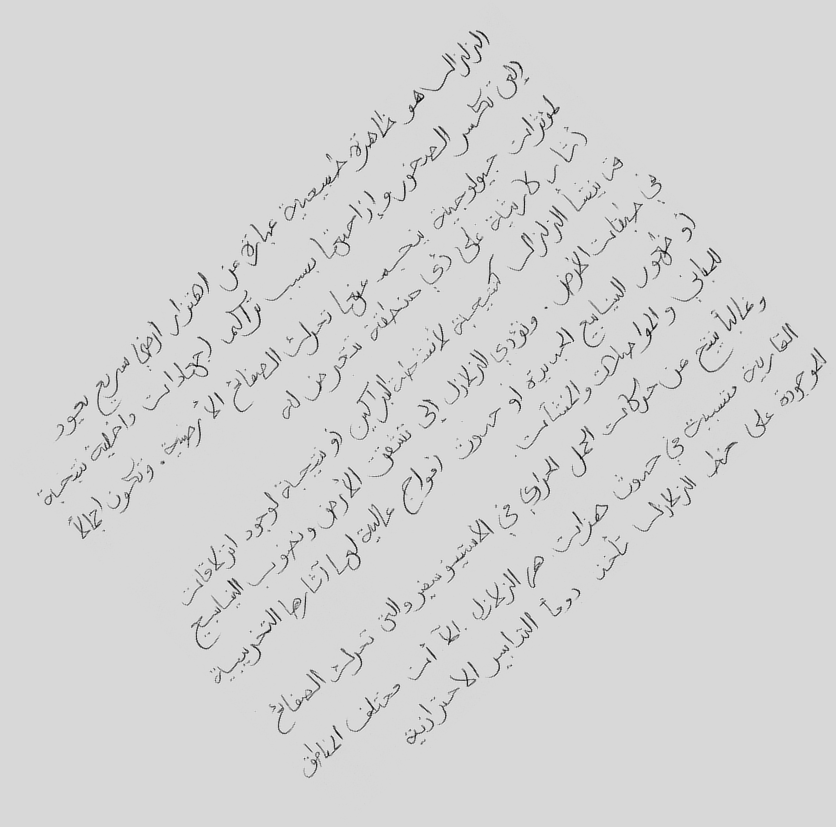 الزلزال هو ظاهرة طبيعية عبارة عن اهتزاز ارضي سريع يعود
إلى تكسر الصخور وإزاحتها بسبب تراكم اجهادات داخلية نتيجة
لمؤثرات جيولوجية ينجم عنها تحرك الصفائح الأرضية. وتكون اجمالاً
آثار كارثية على أي منطقة تتعرض له
قد ينشأ الزلزال كنتيجة لأنشطة البراكين أو نتيجة لوجود انزلاقات
في طبقات الأرض. وتؤدي الزلازل إلى تشقق الأرض ونضوب الينابيع
أو ظهور الينابيع الجديدة أو حدوث أمواج عالية لها آثارها التخريبية
المباني والمواصلات والمنشآت.
وغالباً ينتج عن حركات الحمل الحراري في الاستينوسفير والتي تحرك الصفائح
القارية متسببة في حدوث هزات هي الزلازل. إلا أن مختلف المناطق
الموجودة على خط الزلازل تأخذ دوماً التدابير الاحترازية